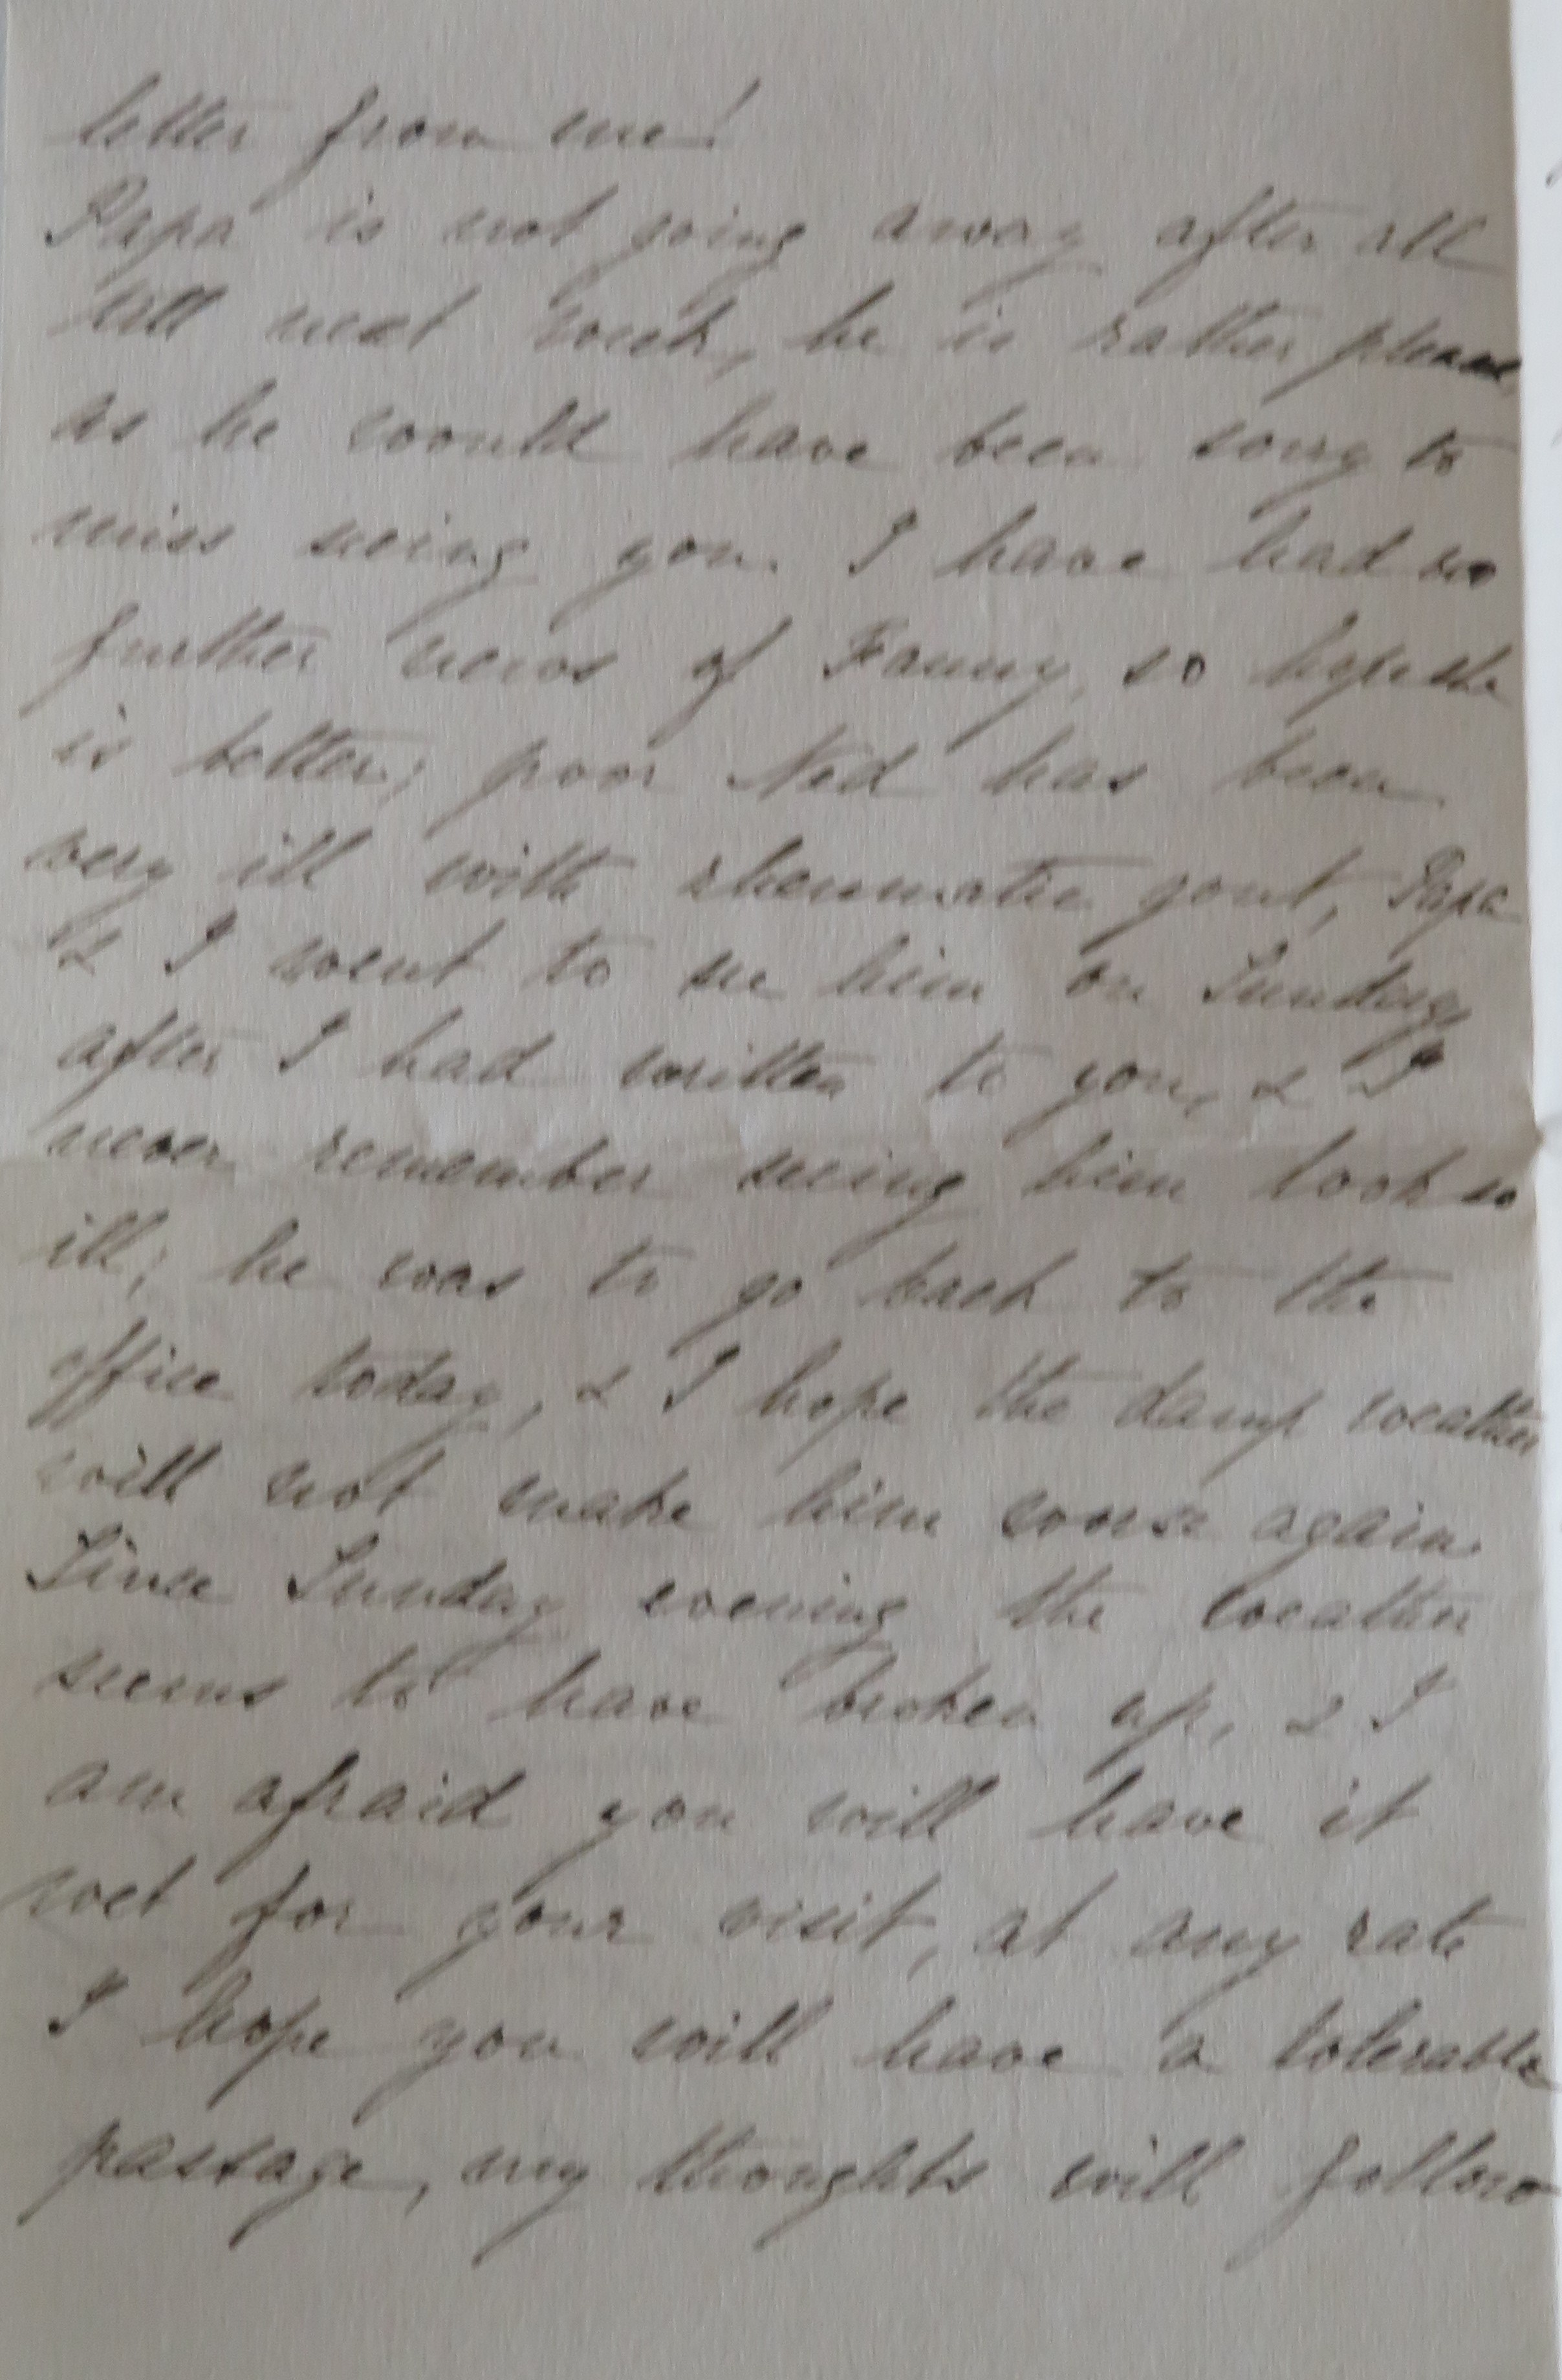 letter from me!
Papa is not going away after all
till next week, he is rather pleased,
as he would have been sorry to
miss seeing you. I have had no
further news of Fanny, so hope she
is better; poor Ned has been
very ill with rheumatic gout, Papa
& I went to see him on Sunday
after I had written to you, & I
never remember seeing him look so
ill; he was to go back to the
office today, & I hope the damp weather
will not make him worse again.
Since Sunday evening the weather
seems to have broken up, & I
am afraid you will have it
wet for your visit, at any rate
I hope you will have a tolerable
passage, my thoughts will follow